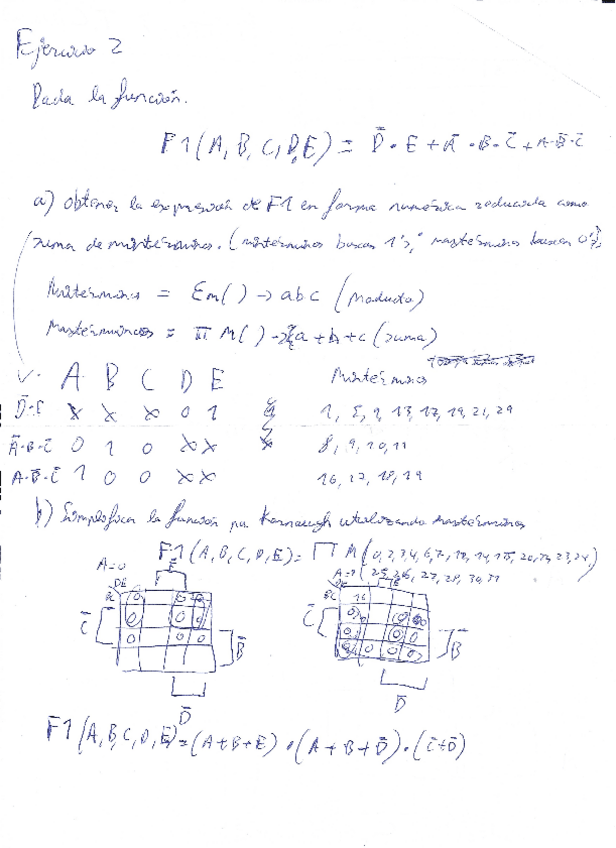 Ejercicio 2
Dada la función.
F1(A, B, C, D, E) = D̄·E + Ā·B·C̄ + A·B̄·C̄
a) obtener la expresión de F1 en forma numérica reducida como
suma de minterminos. (mintérminos buscan 1's, maxtérminos buscan 0's)
Mintérminos = Σm() → abc (Producto)
Maxtérminos = π M() → a+b+c (suma)
A B C D E Mintérminos
D̄·E x x x 0 1 1, 5, 9, 13, 17, 19, 21, 29
Ā·B·C̄ 0 1 0 x x 8, 9, 10, 11
A·B̄·C̄ 1 0 0 x x 16, 17, 18, 19
b) Simplificar la función por Karnaugh utilizando maxtérminos
F1(A, B, C, D, E) = ∏ M(0, 2, 3, 4, 6, 7, 12, 14, 15, 20, 22, 23, 24,
25, 26, 27, 28, 30, 31
A=0 DE BC E A=1 DE BC
C̄ B̄ C̄ B̄
D̄ D̄
F1(A, B, C, D, E) = (A+B+E)·(A+B+D̄)·(C̄+D̄)